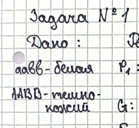 Задача №1
Дано:
аавв - белая P₁:
ААВВ - темно-
кожий G: